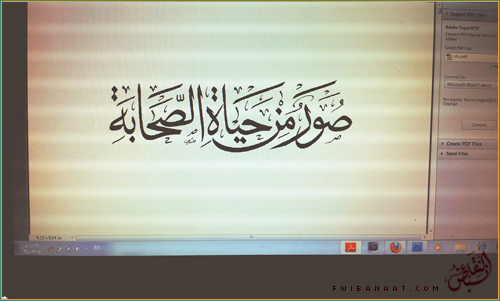 Export PDF Files
Adobe ExportPDF
Select PDF File
Convert To
Microsoft Word (*.docx)
Recognize Text in
Change
Convert
Create PDF Files
Send Files
صُوَرٌ مِنْ حَيَاةِ الصَّحَابَةِ
FWIBANAAT.COM